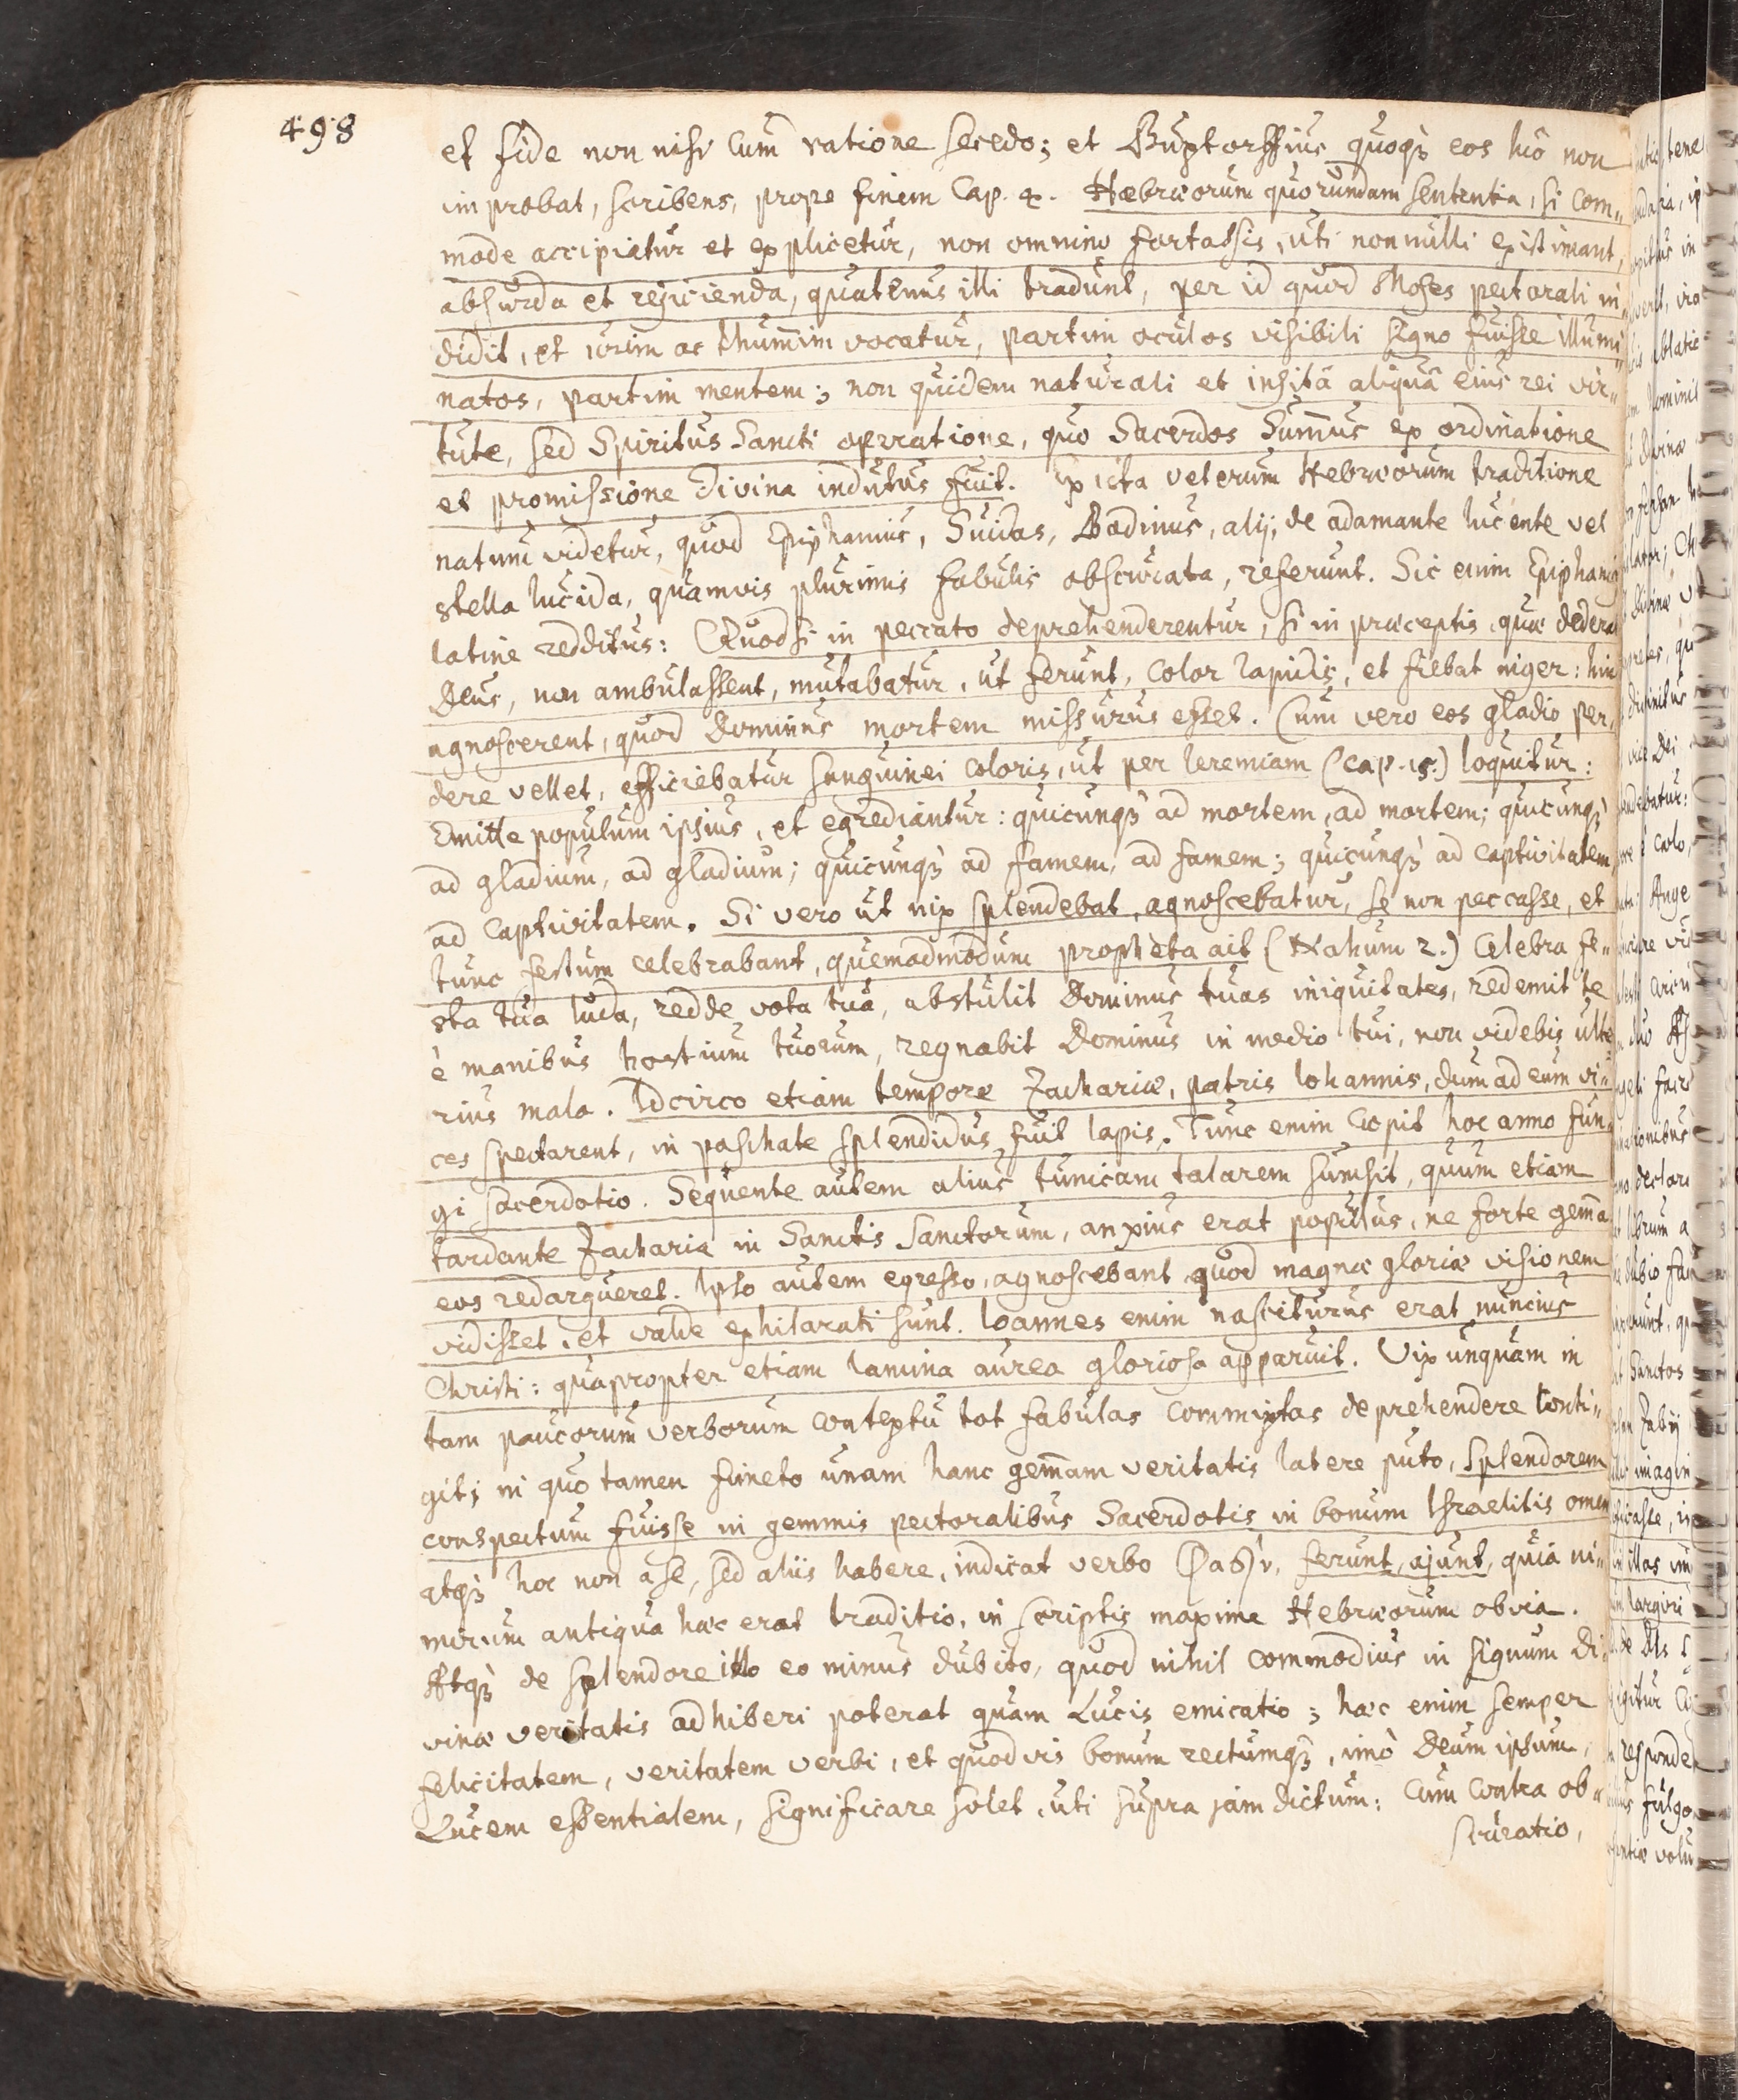 498
et fide non nisi cum ratione secedo; et Buxtorffius quoqꝫ eos hîc non
improbat, scribens, prope finem Cap. 4. Hebræorum quorundam sententia, si com„
mode accipiatur et explicetur, non omnino fortassis, uti nonnulli existimant,
absurda et rejicienda, quatenus illi tradunt, per id quod Moses pectorali in„
didit, et urim ac thummim vocatur, partim oculos visibili signo fuisse illumi„
natos, partim mentem; non quidem naturali et insitâ aliquâ eius rei vir„
tute, sed Spiritus Sancti operatione, quo Sacerdos Sum̄us ex ordinatione
et promissione divina indutus fuit. Ex ista veterum Hebræorum traditione
natum videtur, quod Epiphanius, Suidas, Bodinus, alij, de adamante lucente vel
stella lucida, quamvis plurimis fabulis obscurata, referunt. Sic enim Epiphani9
latine redditus: Quodsi in peccato deprehenderentur, si in præceptis, quæ dedera
Deus, non ambulassent, mutabatur, ut ferunt, color lapidis, et fiebat niger: hin
agnoscerent, quod Dominus mortem missurus esset. Cum vero eos gladio per„
dere vellet, efficiebatur sanguinei coloris, ut per Ieremiam (cap. 15.) loquitur:
Emitte populum ipsius, et egrediantur: quicunqꝫ ad mortem, ad mortem; quicunqꝫ
ad gladium, ad gladium; quicunqꝫ ad famem, ad famem; quicunqꝫ ad captivitatem,
ad captivitatem. Si vero ut nix splendebat, agnoscebatur, se non peccasse, et
tunc festum celebrabant, quemadmodum propheta ait (Nahum 2.) Celebra fe„
sta tua Iuda, redde vota tua, abstulit Dominus tuas iniquitates, redemit te
è manibus hostium tuorum, regnabit Dominus in medio tui, non videbis ulte„
rius mala. Idcirco etiam tempore Zachariæ, patris Iohannis, dum ad eum vi„
ces spectarent, in paschate splendidus fuit lapis. Tunc enim cœpit hoc anno fun„
gi sacerdotio. Sequente autem alius tunicam talarem sumsit, quum etiam
tardante Zacharia in Sanctis Sanctorum, anxius erat populus, ne forte gem̄a
eos redargueret. Ipso autem egresso, agnoscebant quod magnæ gloriæ visionem
vidisset, et valde exhilarati sunt. Ioannes enim nasciturus erat nuncius
Christi: quapropter etiam lamina aurea gloriosa apparuit. Vix unquam in
tam paucorum verborum contextu tot fabulas commixtas deprehendere conti„
git; in quo tamen fimeto unam hanc gem̄am veritatis latere puto, splendorem
conspectum fuisse in gemmis pectoralibus Sacerdotis in bonum Israelitis omen
atqꝫ hoc non à se, sed aliis habere, indicat verbo φασὶν, ferunt, ajunt, quia ni„
mirum antiqua hæc erat traditio, in scriptis maxime Hebræorum obvia.
Atqꝫ de splendore illo eo minus dubito, quod nihil commodius in signum Di„
vinæ veritatis adhiberi poterat quam Lucis emicatio; hæc enim semper
felicitatem, veritatem verbi, et quodvis bonum rectumqꝫ, imò Deum ipsum,
Lucem essentialem, significare solet, uti supra jam dictum: Cum contra ob„
scuratio,